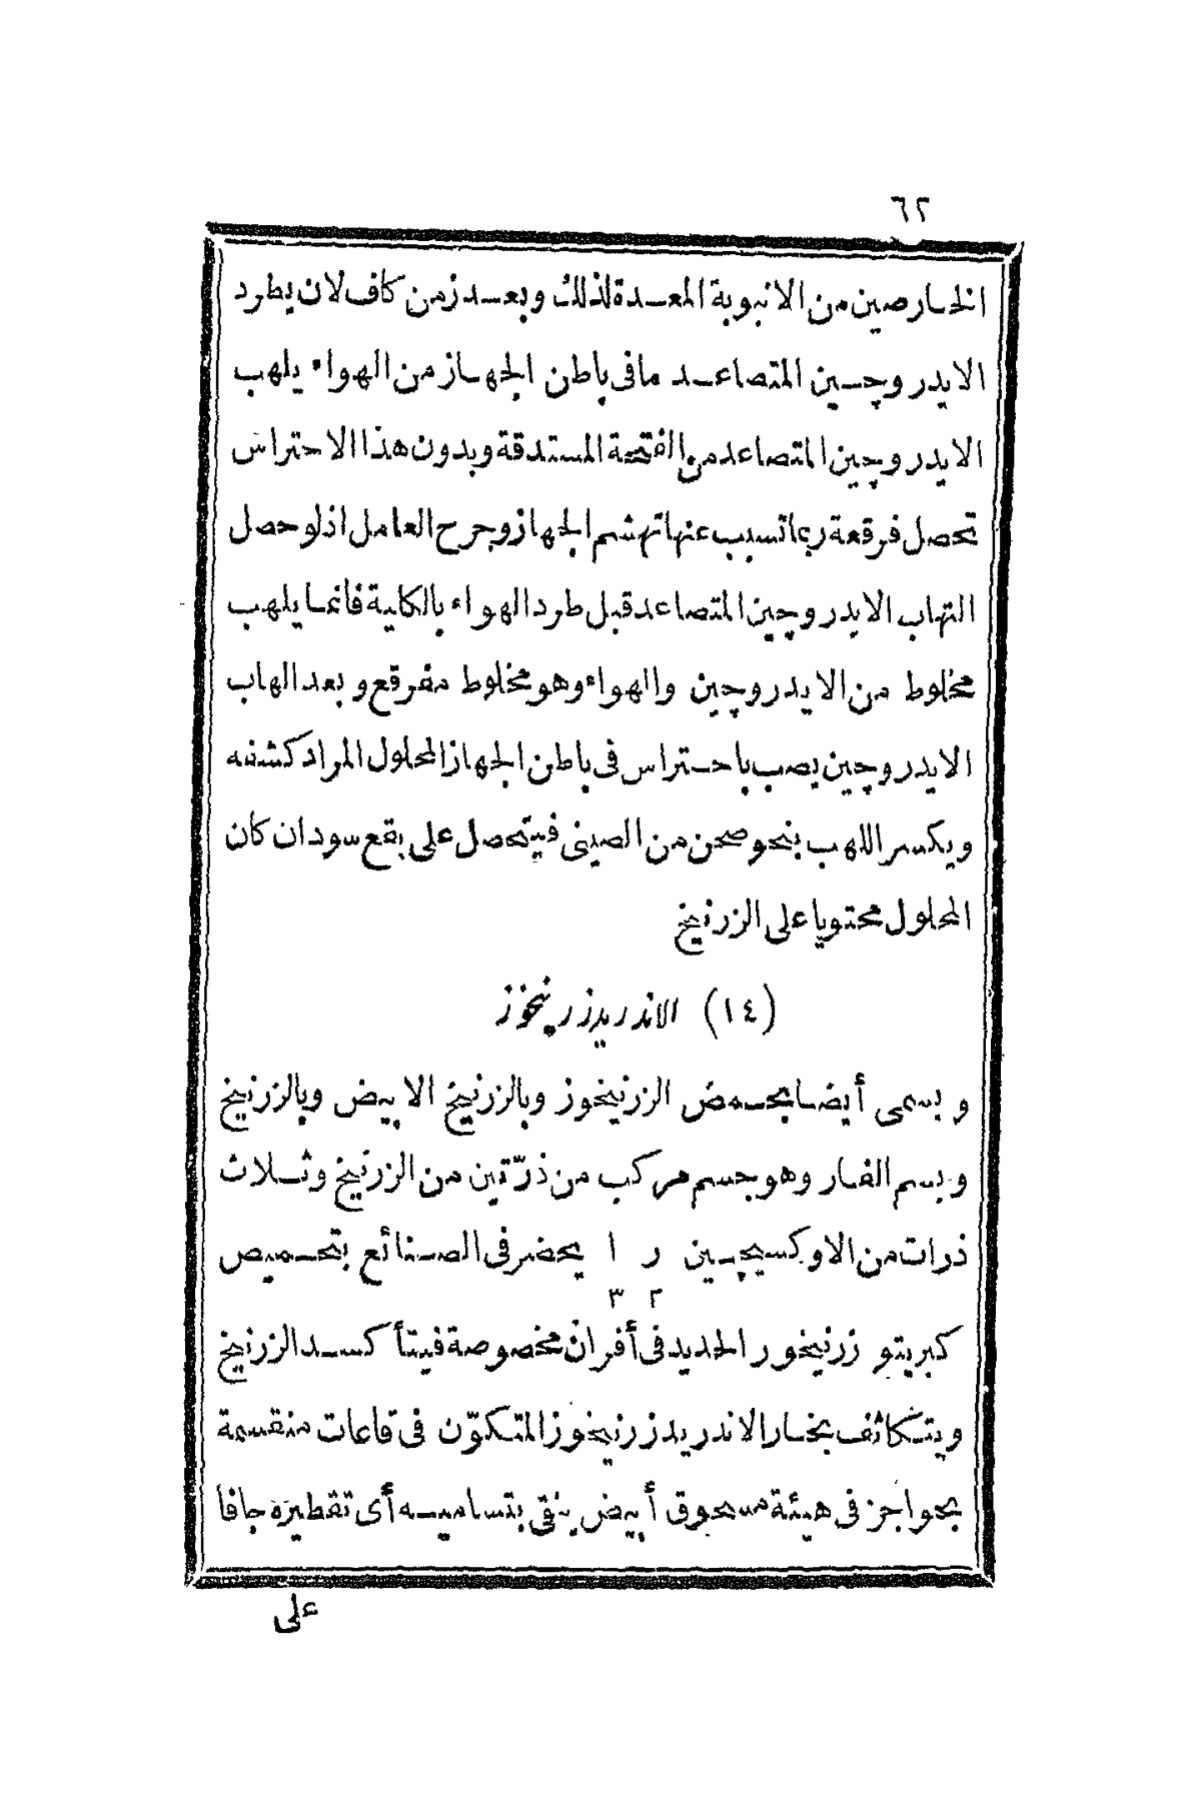 ٦٢
الخارصين من الانبوبة المعدة لذلك وبعد زمن كاف لان يطرد
الايدروچين المتصاعد ما فى باطن الجهاز من الهواء يلهب
الايدروچين المتصاعد من الفتحة المستدقة وبدون هذا الاحتراس
تحصل فرقعة ربما تسبب عنها تهشم الجهاز وجرح العامل اذ لو حصل
التهاب الايدروچين المتصاعد قبل طرد الهواء بالكلية فانما يلهب
مخلوط من الايدروچين والهواء وهو مخلوط مفرقع وبعد الهاب
الايدروچين يصب باحتراس فى باطن الجهاز المحلول المراد كشفه
ويكسر اللهب بنحو صحن من الصينى فيتحصل على بقع سود ان كان
المحلول محتويا على الزرنيخ
(١٤) الاندريدزرنيخوز
ويسمى أيضا بحمض الزرنيخوز وبالزرنيخ الابيض وبالزرنيخ
وبسم الفار وهو جسم مركب من ذرّتين من الزرنيخ وثلاث
ذرات من الاوكسيچين ر ا يحضر فى الصنائع بتحميص
٢ ٣
كبريتو زرنيخور الحديد فى أفران مخصوصة فيتأكسد الزرنيخ
ويتكاثف بخار الاندريدزرنيخوز المتكوّن فى قاعات منقسمة
بحواجز فى هيئة مسحوق أبيض ينقى بتساميه أى تقطيره جافا
على